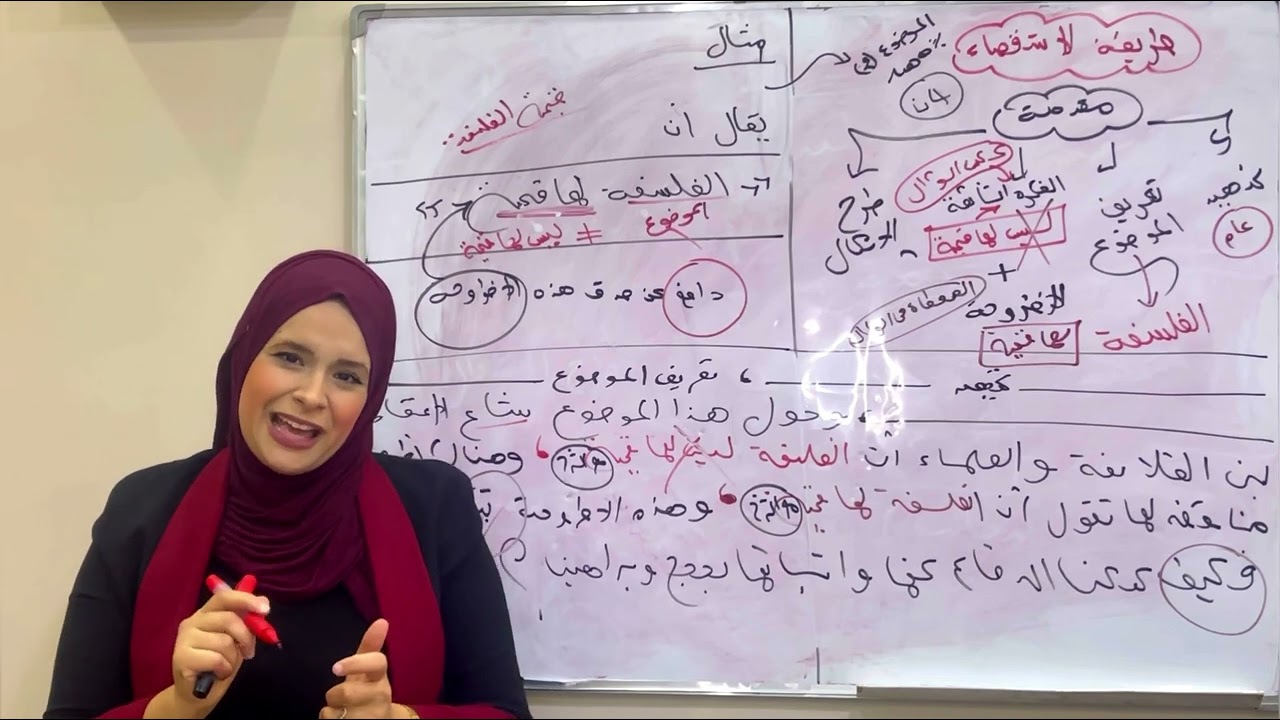 طريقة الاستقصاء
الموضوع
مقدمة
تمهيد
عام
تعريف
الموضوع
الفلسفة
الفكرة الشائعة
ليس لها قيمة
+
الأطروحة
لها قيمة
طرح
الاشكال
مثال
قيمة الفلسفة
يقال أن
" الفلسفة لها قيمة "
الموضوع
≠ ليس لها قيمة
دافع عن صدق هذه الأطروحة
تمهيد ، تعريف الموضوع
، وحول هذا الموضوع شاع الاعتقاد
بين الفلاسفة والعلماء أن الفلسفة ليس لها قيمة
مناقضة لها تقول أن الفلسفة لها قيمة وهذه الأطروحة
فكيف يمكننا الدفاع عنها واثباتها بحجج وبراهين ؟